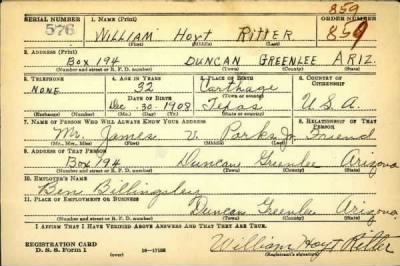 859
SERIAL NUMBER 1. NAME (Print) ORDER NUMBER
576 William Hoyt Ritter 859
(First) (Middle) (Last)
2. ADDRESS (Print)
Box 194 Duncan Greenlee Ariz.
(Number and street or R. F. D. number) (Town) (County) (State)
3. TELEPHONE 4. AGE IN YEARS 5. PLACE OF BIRTH 6. COUNTRY OF CITIZENSHIP
None 32 Carthage
DATE OF BIRTH (Town or county)
Dec. 30 - 1908 Texas U.S.A.
(Exchange) (Number) (Mo.) (Day) (Yr.) (State or country)
7. NAME OF PERSON WHO WILL ALWAYS KNOW YOUR ADDRESS 8. RELATIONSHIP OF THAT PERSON
Mr. James V. Parks Jr. Friend
(Mr., Mrs., Miss) (First) (Middle) (Last)
9. ADDRESS OF THAT PERSON
Box 194 Duncan Greenlee Arizona
(Number and street or R. F. D. number) (Town) (County) (State)
10. EMPLOYER'S NAME
Ben Billingsley
11. PLACE OF EMPLOYMENT OR BUSINESS
Duncan Greenlee Arizona
(Number and street or R. F. D. number) (Town) (County) (State)
I AFFIRM THAT I HAVE VERIFIED ABOVE ANSWERS AND THAT THEY ARE TRUE.
REGISTRATION CARD
D. S. S. Form 1 (over) William Hoyt Ritter
(Registrant's signature)